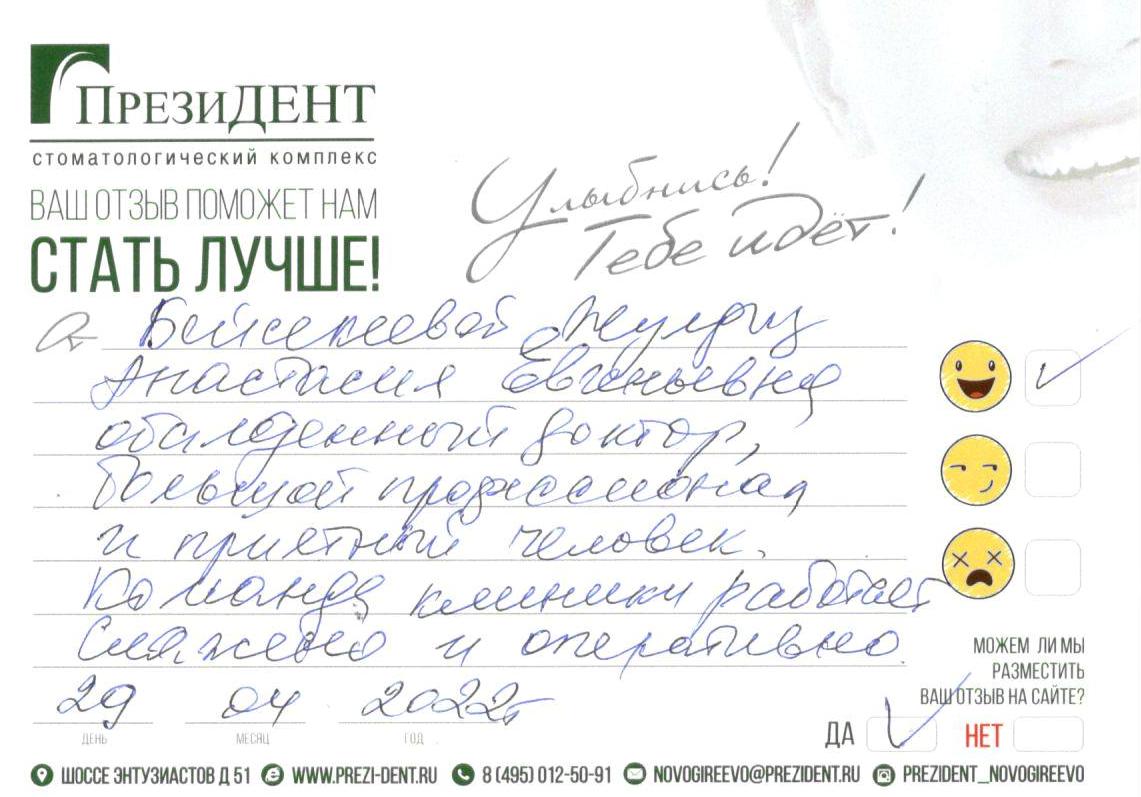 ПрезиДЕНТ
стоматологический комплекс
ВАШ ОТЗЫВ ПОМОЖЕТ НАМ
СТАТЬ ЛУЧШЕ!
Улыбнись!
Тебе идёт!
От Бейсекеевой Жулдыз
Анастасия Евгеньевна
обалденный доктор,
большой профессионал
и приятный человек.
Команда клиники работает
слажено и оперативно.
29 04 2022г
ДЕНЬ МЕСЯЦ ГОД
МОЖЕМ ЛИ МЫ
РАЗМЕСТИТЬ
ВАШ ОТЗЫВ НА САЙТЕ?
ДА НЕТ
ШОССЕ ЭНТУЗИАСТОВ Д 51 WWW.PREZI-DENT.RU 8 (495) 012-50-91 NOVOGIREEVO@PREZIDENT.RU PREZIDENT_NOVOGIREEVO